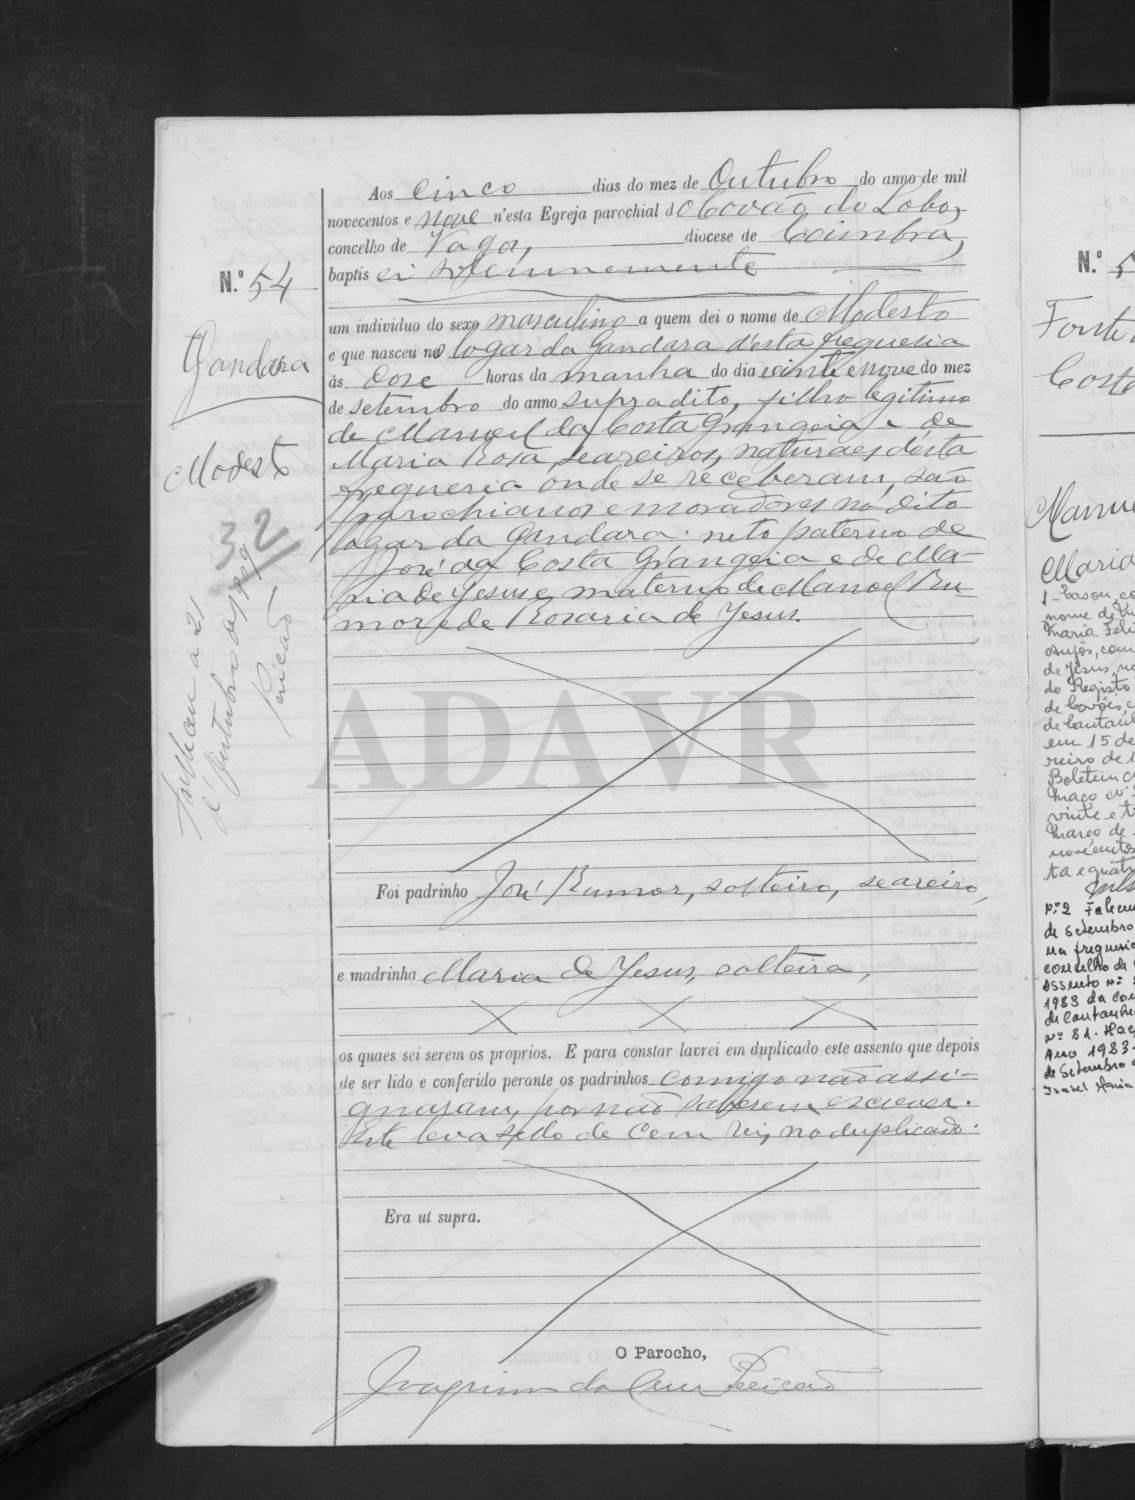 Aos cinco dias do mez de Outubro do anno de mil
novecentos e nove n'esta Egreja parochial do Covão do Lobo,
concelho de Vagos, diocese de Coimbra,
baptisei solemnemente
N.º 54
um individuo do sexo masculino a quem dei o nome de Modesto
e que nasceu no logar da Gandara d'esta freguesia
ás doze horas da manhã do dia vinte e nove do mez
de setembro do anno supradito, filho legitimo
de Manoel da Costa Grangeia e de
Maria Rosa, seareiros, naturaes d'esta
freguesia onde se receberam, são
parochianos e moradores no dito
logar da Gandara: neto paterno de
José da Costa Grangeia e de Ma-
ria de Jesus e materno de Manoel Ru-
mor e de Rosaria de Jesus.
Gandara
Modesto
32
Falleceu a 21
d'Outubro de 1909
Peixão
ADAVR
Foi padrinho José Rumor, solteiro, seareiro,
e madrinha Maria de Jesus, solteira,
os quaes sei serem os proprios. E para constar lavrei em duplicado este assento que depois
de ser lido e conferido perante os padrinhos comigo não assi-
gnaram, por não saberem escrever.
Este leva sello de cem reis no duplicado.
Era ut supra.
O Parocho,
Joaquim da Cruz Peixão
N.º 5
Costa
Manue
Maria
1 - Casou co
nome de
Maria Feli
de Jesus, na
do Registo
em 15 de
Boletim
Maço nº
vinte e t
Março de
N.º 2 Faleceu
de Setembro
na freguesia
concelho de
Assento nº
1983 da Con
de Cantanhe
nº 81. Maç
Ano 1983.
de Setembro
Isabel Maria